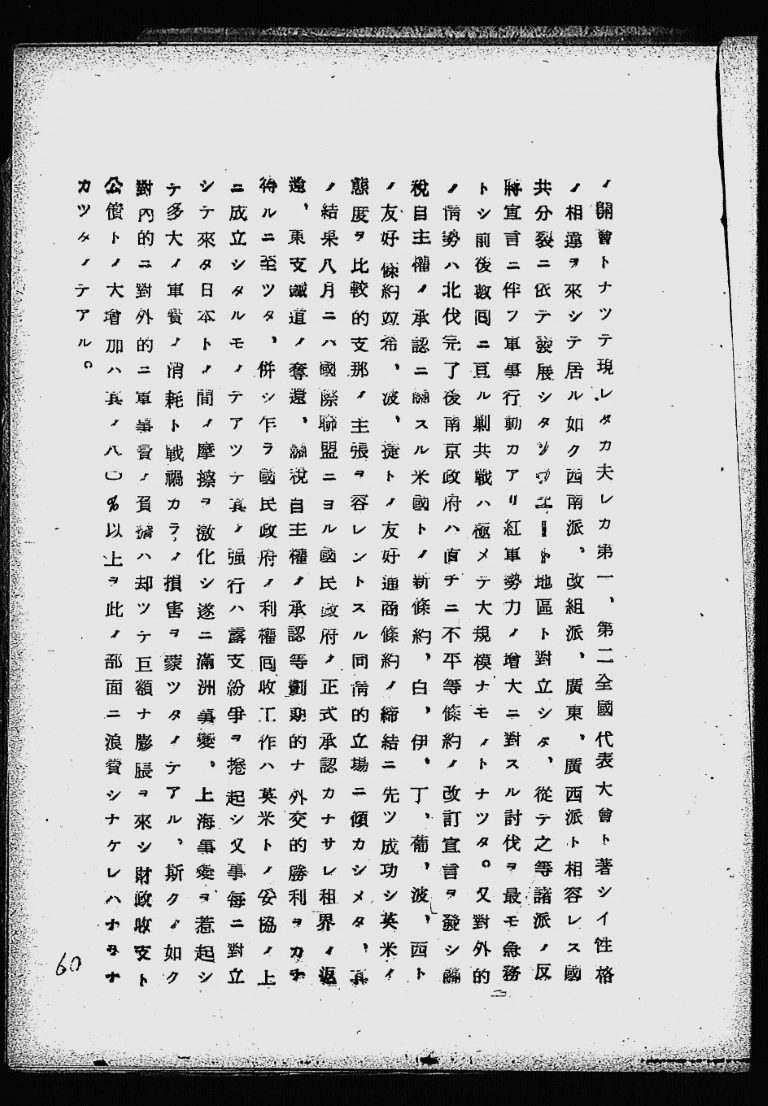 ノ開會トナツテ現レタカ夫レカ第一、第二全國代表大會ト著シイ性格
ノ相違ヲ來シテ居ル如ク西南派、改組派、廣東、廣西派ト相容レス國
共分裂ニ依テ發展シタソウエート地區ト對立シタ、從テ之等諸派ノ反
蔣宣言ニ伴フ軍事行動カアリ紅軍勢力ノ增大ニ對スル討伐ヲ最モ急務
トシ前後數囘ニ亘ル剿共戰ハ極メテ大規模ナモノトナツタ。又對外的
ノ情勢ハ北伐完了後南京政府ハ直チニ不平等條約ノ改訂宣言ヲ發シ關
稅自主權ノ承認ニ關スル米國トノ新條約、白、伊、丁、葡、波、西ト
ノ友好條約竝希、波、捷トノ友好通商條約ノ締結ニ先ツ成功シ英米ノ
態度ヲ比較的支那ノ主張ヲ容レントスル同情的立場ニ傾カシメタ、其
ノ結果八月ニハ國際聯盟ニヨル國民政府ノ正式承認カナサレ租界ノ返
還、東支鐵道ノ奪還、關稅自主權ノ承認等劃期的ナ外交的勝利ヲカチ
得ルニ至ツタ、併シ乍ラ國民政府ノ利權囘收工作ハ英米トノ妥協ノ上
ニ成立シタルモノテアツテ其ノ强行ハ露支紛爭ヲ捲起シ又事每ニ對立
シテ來タ日本トノ間ノ摩擦ヲ激化シ遂ニ滿洲事變、上海事變ヲ惹起シ
テ多大ノ軍費ノ消耗ト戰禍カラノ損害ヲ蒙ツタノテアル、斯クノ如ク
對內的ニ對外的ニ軍事費ノ負擔ハ却ツテ巨額ナ膨脹ヲ來シ財政收支ト
公債トノ大增加ハ其ノ八〇%以上ヲ此ノ部面ニ浪費シナケレハナラナ
カツタノテアル。
60